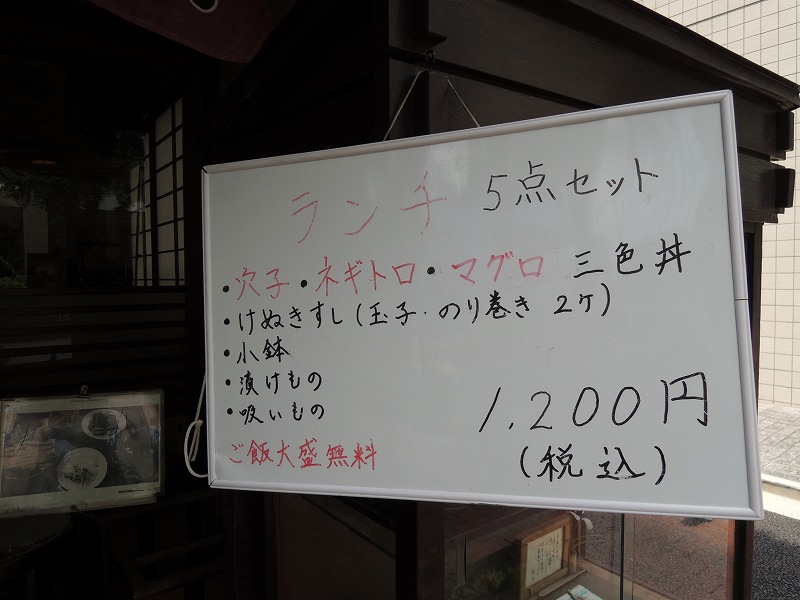 ランチ 5点セット
・穴子・ネギトロ・マグロ 三色丼
・けぬきすし(玉子・のり巻き 2ケ)
・小鉢
・漬けもの
・吸いもの
1,200円
ご飯大盛無料
(税込)